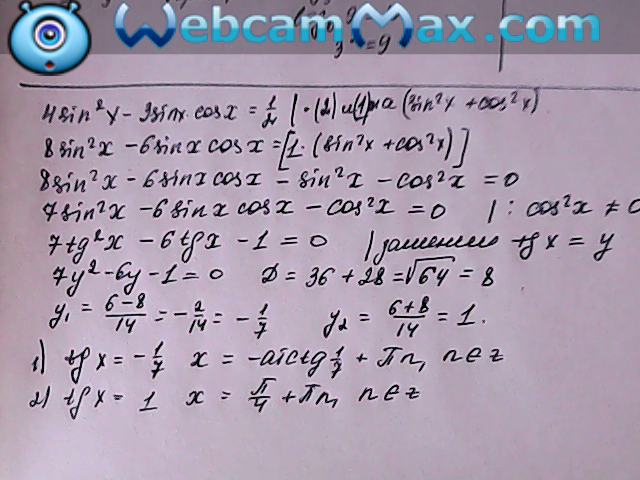 WebcamMax.com
3 = 9
4sin²x - 3sinx·cosx = 1/2 | · (2) и (1) на (sin²x + cos²x)
8sin²x - 6sinx cosx = [1·(sin²x + cos²x)]
8sin²x - 6sinxcosx - sin²x - cos²x = 0
7sin²x - 6sinx cosx - cos²x = 0 | : cos²x ≠ 0
7tg²x - 6tgx - 1 = 0 | заменим tg x = y
7y² - 6y - 1 = 0 D = 36 + 28 = √64 = 8
y₁ = 6-8/14 = -2/14 = -1/7 y₂ = 6+8/14 = 1.
1) tg x = -1/7 x = -arctg 1/7 + Πn, n∈z
2) tg x = 1 x = Π/4 + Πn, n∈z